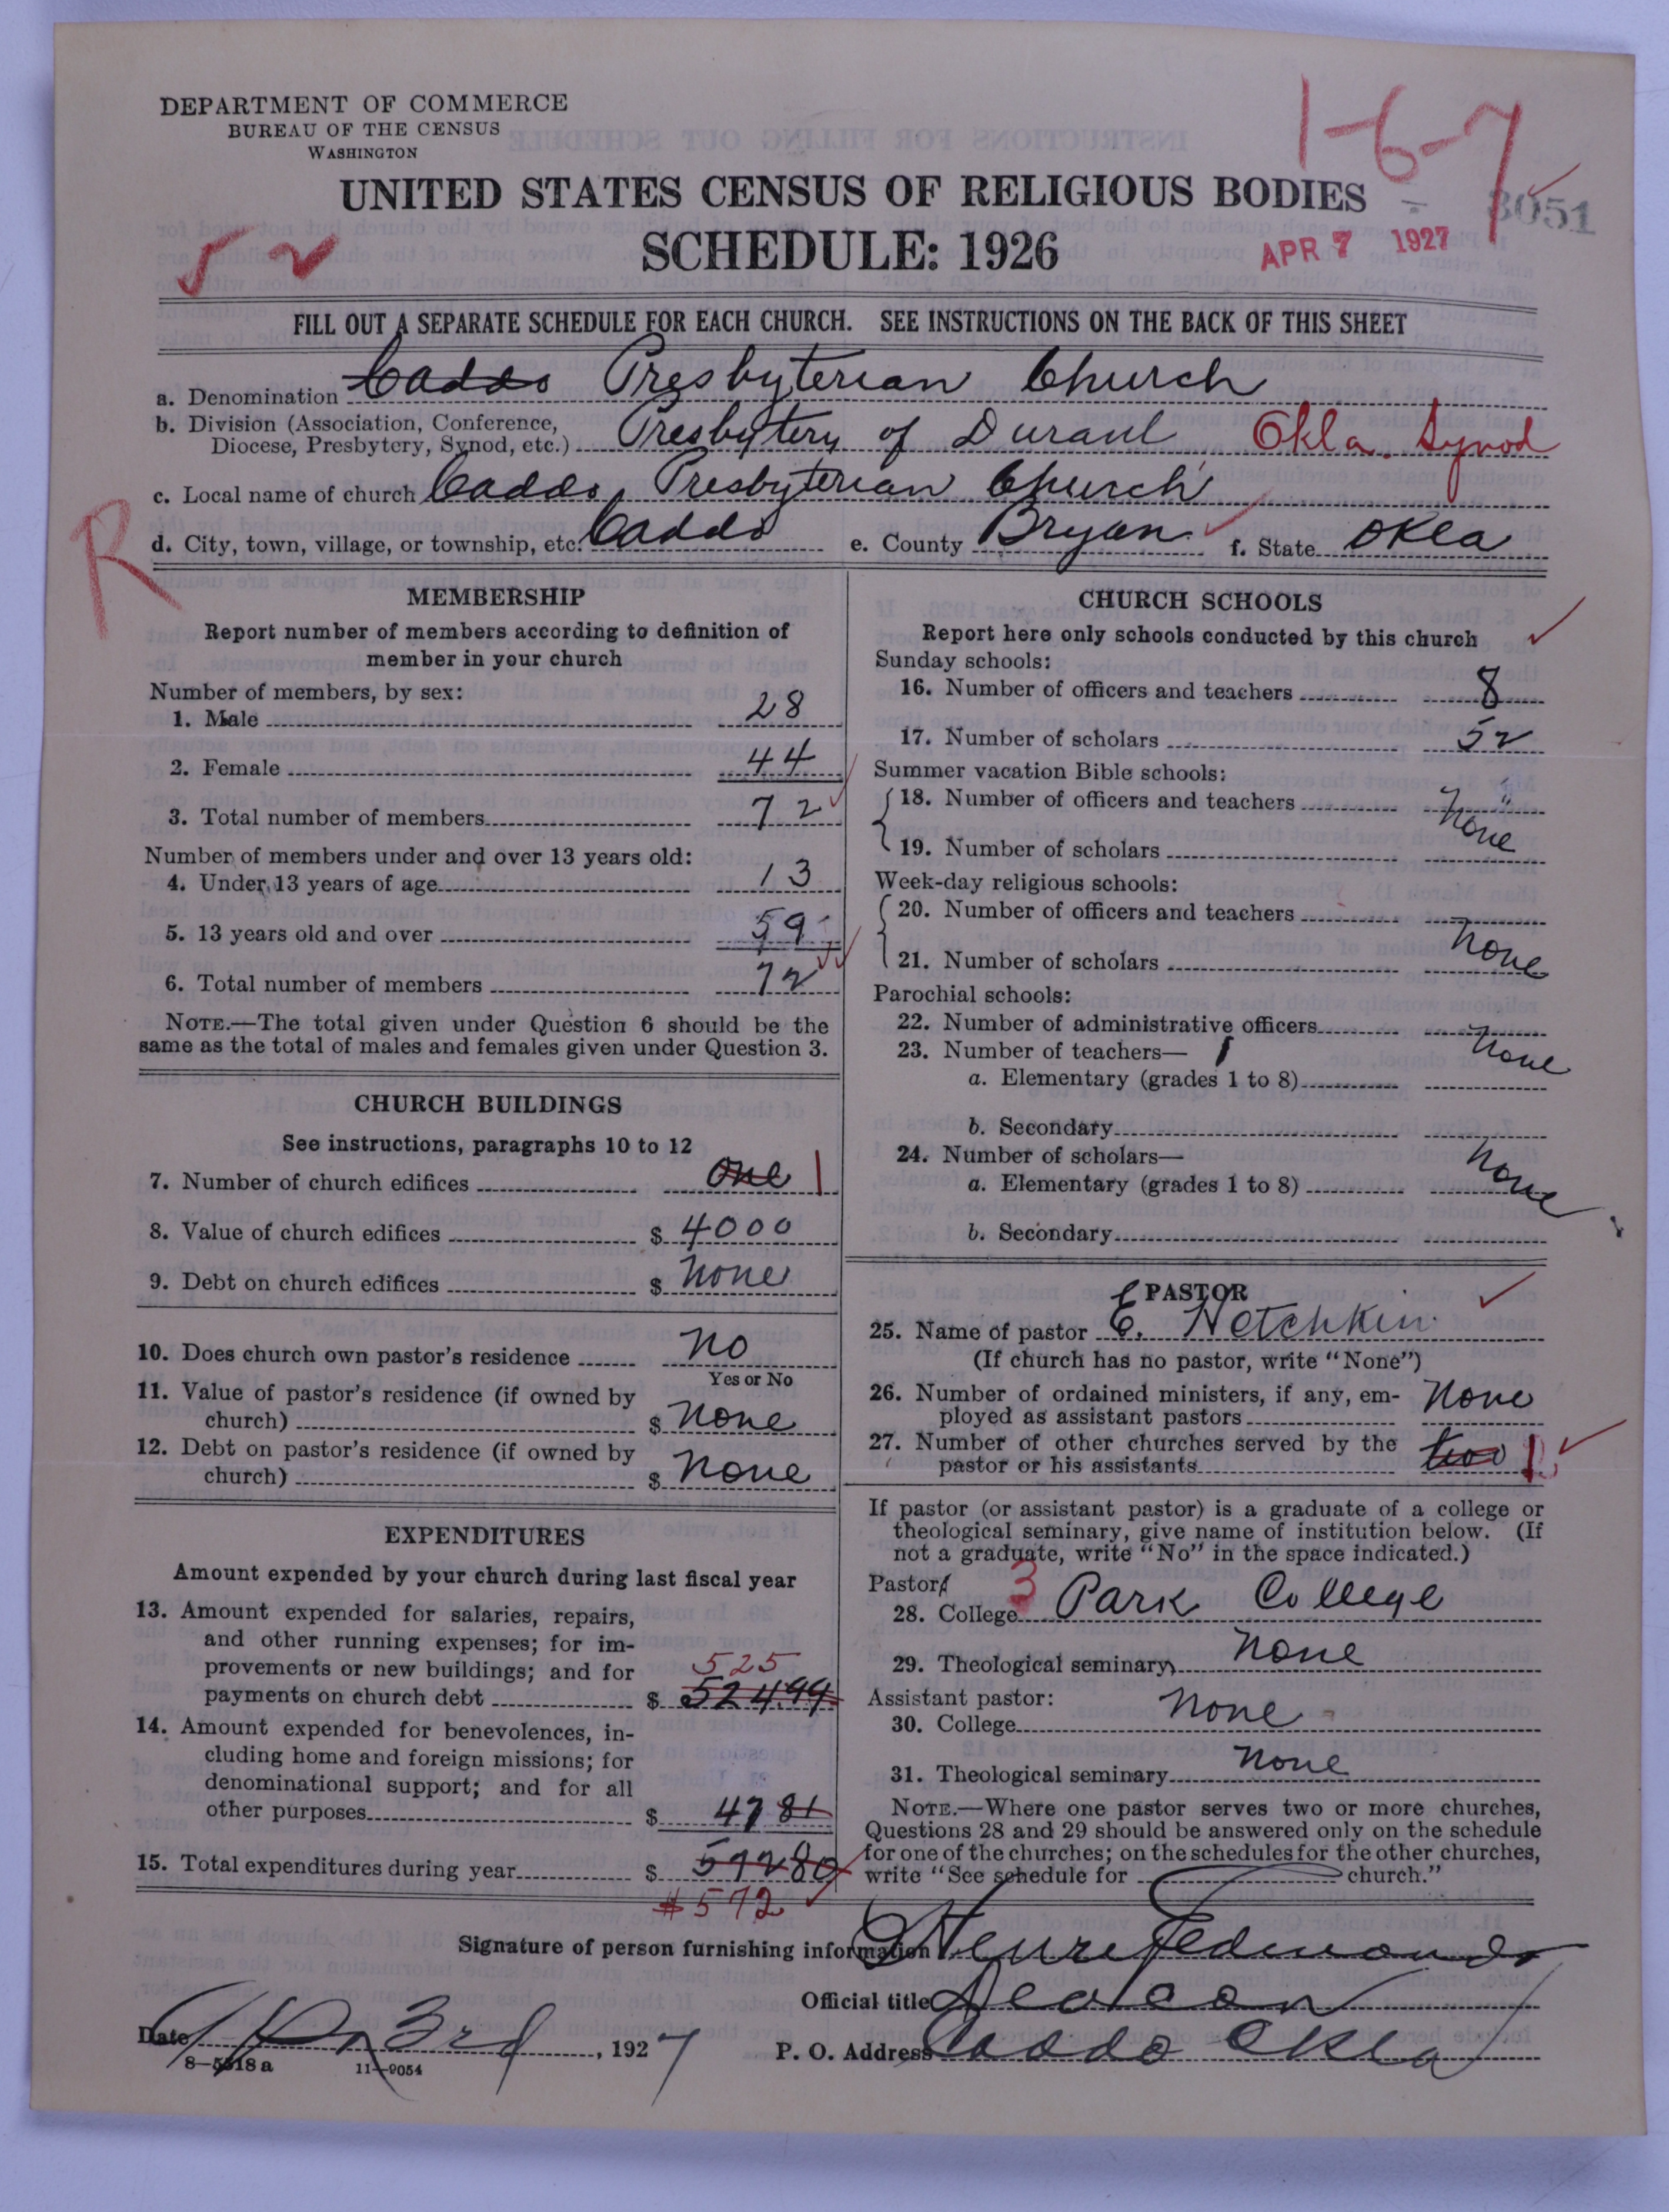 DEPARTMENT OF COMMERCE
BUREAU OF THE CENSUS
WASHINGTON
1-6-7
UNITED STATES CENSUS OF RELIGIOUS BODIES
3051
SCHEDULE: 1926
APR 7 1927
FILL OUT A SEPARATE SCHEDULE FOR EACH CHURCH. SEE INSTRUCTIONS ON THE BACK OF THIS SHEET
a. Denomination Caddo Presbyterian Church
b. Division (Association, Conference,
Diocese, Presbytery, Synod, etc.) Presbytery of Durant Okla. Synod
c. Local name of church Caddo Presbyterian Church
R
d. City, town, village, or township, etc. Caddo e. County Bryan f. State Okla
MEMBERSHIP
Report number of members according to definition of
member in your church
Number of members, by sex:
1. Male 28
2. Female 44
3. Total number of members 72
Number of members under and over 13 years old:
4. Under 13 years of age 13
5. 13 years old and over 59
6. Total number of members 72
NOTE.—The total given under Question 6 should be the
same as the total of males and females given under Question 3.
CHURCH BUILDINGS
See instructions, paragraphs 10 to 12
7. Number of church edifices one 1
8. Value of church edifices $ 4000
9. Debt on church edifices $ none
10. Does church own pastor's residence no
Yes or No
11. Value of pastor's residence (if owned by
church) $ none
12. Debt on pastor's residence (if owned by
church) $ none
EXPENDITURES
Amount expended by your church during last fiscal year
13. Amount expended for salaries, repairs,
and other running expenses; for im-
provements or new buildings; and for
525
payments on church debt $ 524.99
14. Amount expended for benevolences, in-
cluding home and foreign missions; for
denominational support; and for all
other purposes $ 47 81
15. Total expenditures during year $ 572 80
$572
CHURCH SCHOOLS
Report here only schools conducted by this church
Sunday schools:
16. Number of officers and teachers 8
17. Number of scholars 52
Summer vacation Bible schools:
18. Number of officers and teachers "
none
19. Number of scholars
Week-day religious schools:
20. Number of officers and teachers
none
21. Number of scholars
Parochial schools:
22. Number of administrative officers
none
23. Number of teachers—
a. Elementary (grades 1 to 8)
b. Secondary
24. Number of scholars—
none
a. Elementary (grades 1 to 8)
b. Secondary
PASTOR
25. Name of pastor E. Hotchkin
(If church has no pastor, write "None")
26. Number of ordained ministers, if any, em-
ployed as assistant pastors none
27. Number of other churches served by the
pastor or his assistants two
If pastor (or assistant pastor) is a graduate of a college or
theological seminary, give name of institution below. (If
not a graduate, write "No" in the space indicated.)
Pastor:
28. College 3 Park College
29. Theological seminary none
Assistant pastor:
30. College none
31. Theological seminary none
NOTE.—Where one pastor serves two or more churches,
Questions 28 and 29 should be answered only on the schedule
for one of the churches; on the schedules for the other churches,
write "See schedule for church."
Signature of person furnishing information Henri Edmonds
Official title Deacon
Date Apr 3rd, 1927
P. O. Address Caddo Okla
8-5518a 11-9054